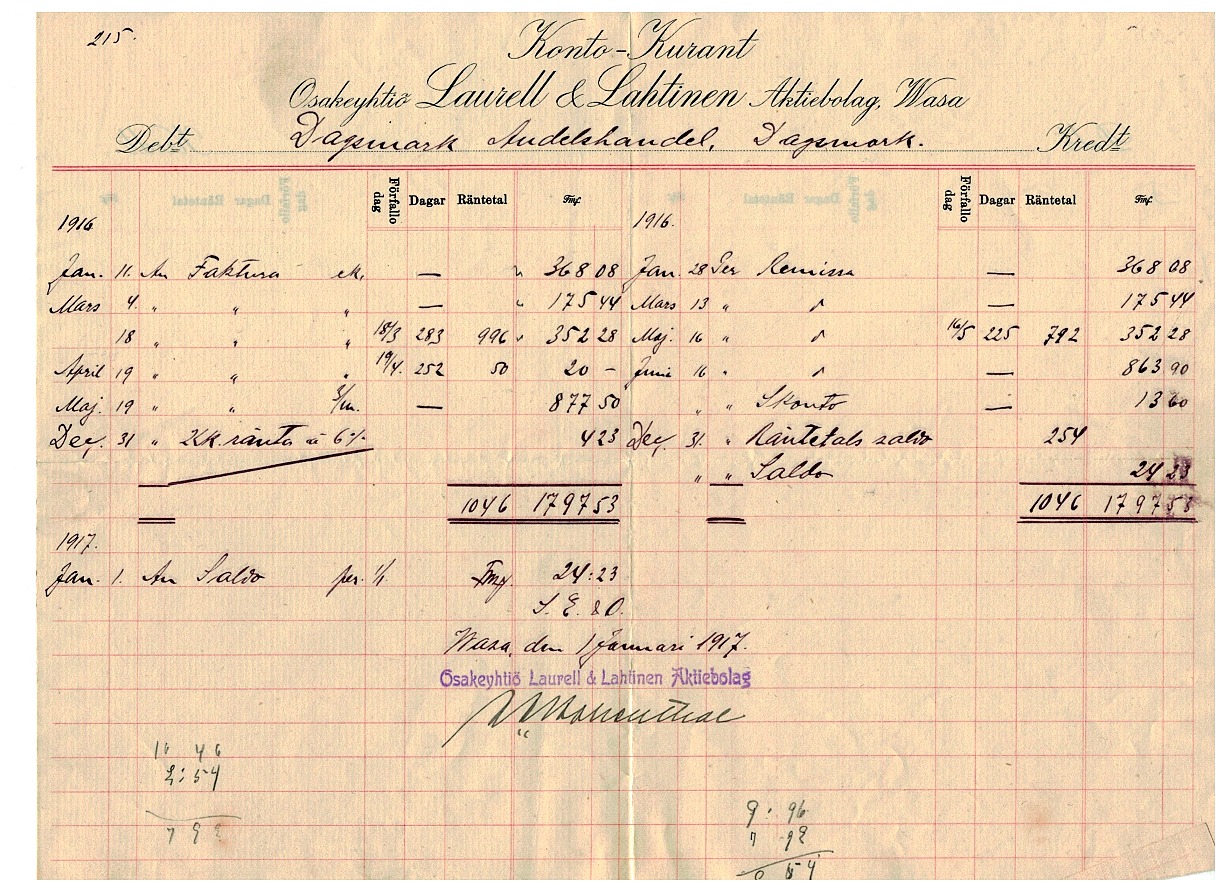 215.
Konto-Kurant
Osakeyhtiö Laurell & Lahtinen Aktiebolag, Wasa
Debt Dagsmark Andelshandel, Dagsmark. Kredt
Förfallo dag Dagar Räntetal Fmf. Förfallo dag Dagar Räntetal Fmf.
1916 1916.
Jan. 11. An Faktura ek. — " 368 08 Jan. 28 Per Remissa — 368 08
Mars 4. " " " — " 175 44 Mars 13 " " — 175 44
18 " " " 18/3 283 996 " 352 28 Maj. 16 " " 16/5 225 792 352 28
April 19 " " " 19/4. 252 50 20 – Juni 16 " " — 863 90
Maj. 19 " " 3/m. — 877 50 " " Skonto — 13 60
Dec. 31 " KK ränta à 6% 4 23 Dec. 31. " Räntetals saldo 254
" " Saldo 24 23
1046 1797 53 1046 1797 53
1917.
Jan. 1. An Saldo per. 1/1 Fmf 24:23
S. E. & O.
Wasa, den 1 Januari 1917.
Osakeyhtiö Laurell & Lahtinen Aktiebolag
10 46
2:54
7 92
9: 96
7 92
2 54